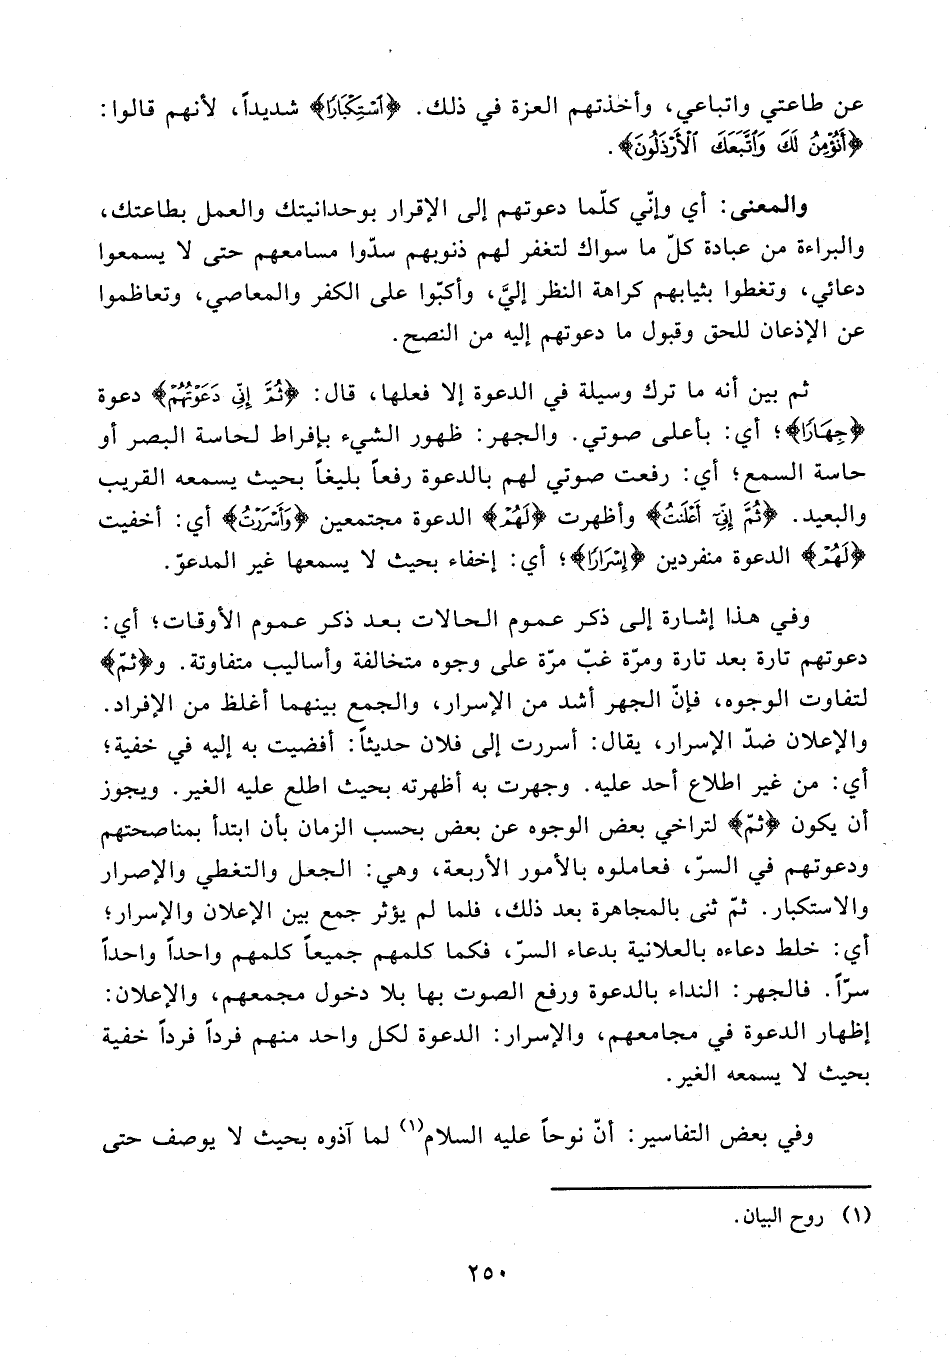 عن طاعتي واتباعي، وأخذتهم العزة في ذلك. ﴿ٱسْتِكْبَارًا﴾ شديداً، لأنهم قالوا:
﴿أَنُؤْمِنُ لَكَ وَٱتَّبَعَكَ ٱلْأَرْذَلُونَ﴾.
والمعنى: أي وإنّي كلّما دعوتهم إلى الإقرار بوحدانيتك والعمل بطاعتك،
والبراءة من عبادة كلّ ما سواك لتغفر لهم ذنوبهم سدّوا مسامعهم حتى لا يسمعوا
دعائي، وتغطوا بثيابهم كراهة النظر إليَّ، وأكبّوا على الكفر والمعاصي، وتعاظموا
عن الإذعان للحق وقبول ما دعوتهم إليه من النصح.
ثم بين أنه ما ترك وسيلة في الدعوة إلا فعلها، قال: ﴿ثُمَّ إِنِّي دَعَوْتُهُمْ﴾ دعوة
﴿جِهَارًا﴾؛ أي: بأعلى صوتي. والجهر: ظهور الشيء بإفراط لحاسة البصر أو
حاسة السمع؛ أي: رفعت صوتي لهم بالدعوة رفعاً بليغاً بحيث يسمعه القريب
والبعيد. ﴿ثُمَّ إِنِّيٓ أَعْلَنتُ﴾ وأظهرت ﴿لَهُمْ﴾ الدعوة مجتمعين ﴿وَأَسْرَرْتُ﴾ أي: أخفيت
﴿لَهُمْ﴾ الدعوة منفردين ﴿إِسْرَارًا﴾؛ أي: إخفاء بحيث لا يسمعها غير المدعوّ.
وفي هذا إشارة إلى ذكر عموم الحالات بعد ذكر عموم الأوقات؛ أي:
دعوتهم تارة بعد تارة ومرّة غبّ مرّة على وجوه متخالفة وأساليب متفاوتة. و﴿ثمّ﴾
لتفاوت الوجوه، فإنّ الجهر أشد من الإسرار، والجمع بينهما أغلظ من الإفراد.
والإعلان ضدّ الإسرار، يقال: أسررت إلى فلان حديثاً: أفضيت به إليه في خفية؛
أي: من غير اطلاع أحد عليه. وجهرت به أظهرته بحيث اطلع عليه الغير. ويجوز
أن يكون ﴿ثمّ﴾ لتراخي بعض الوجوه عن بعض بحسب الزمان بأن ابتدأ بمناصحتهم
ودعوتهم في السرّ، فعاملوه بالأمور الأربعة، وهي: الجعل والتغطي والإصرار
والاستكبار. ثمّ ثنى بالمجاهرة بعد ذلك، فلما لم يؤثر جمع بين الإعلان والإسرار؛
أي: خلط دعاءه بالعلانية بدعاء السرّ، فكما كلمهم جميعاً كلمهم واحداً واحداً
سرّاً. فالجهر: النداء بالدعوة ورفع الصوت بها بلا دخول مجمعهم، والإعلان:
إظهار الدعوة في مجامعهم، والإسرار: الدعوة لكل واحد منهم فرداً فرداً خفية
بحيث لا يسمعه الغير.
وفي بعض التفاسير: أنّ نوحاً عليه السلام(١) لما آذوه بحيث لا يوصف حتى
(١) روح البيان.
٢٥٠